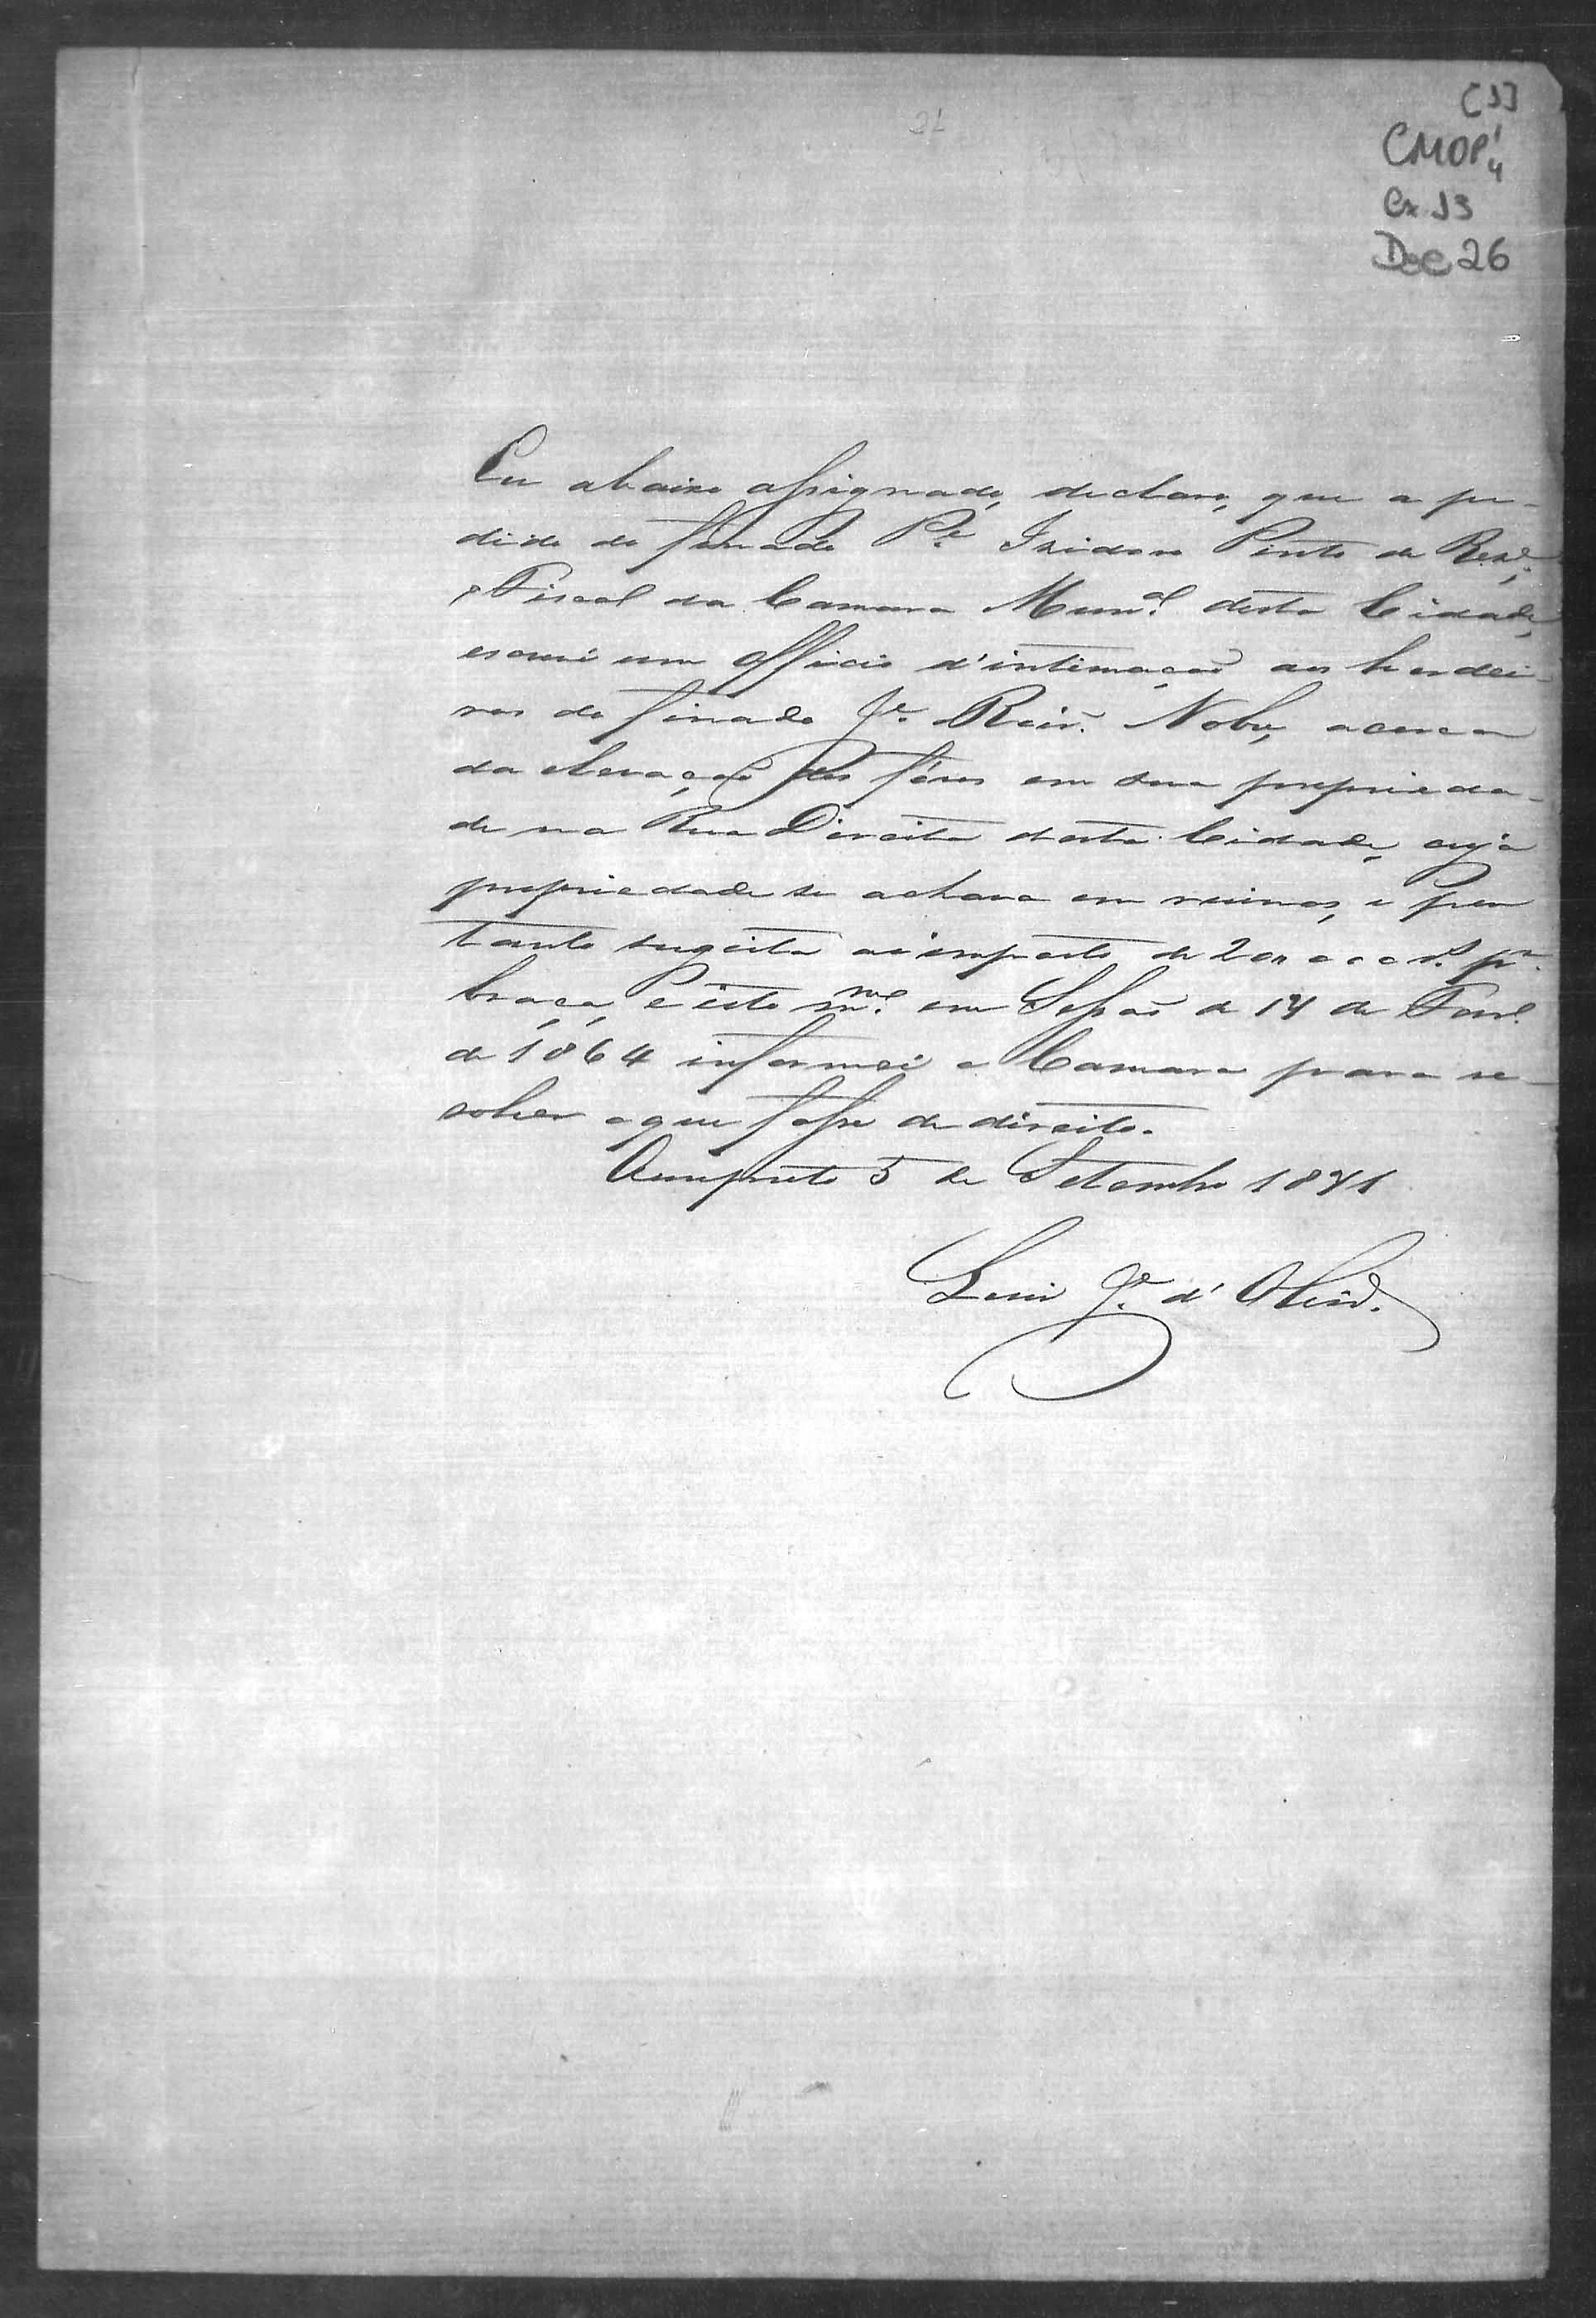 [1]
CMOP 1/4
Cx 13
Doc 26
Eu abaixo assignado, declaro, que a pe-
dido do finado P.e Izidoro Pinto de Rez.e,
Fiscal da Camara Mun.al desta Cidade,
escrevi um officio d'intimação aos herdei-
ros do finado J.e Roiz. Nobre, acerca
da elevação dos fóros em sua proprieda-
de na Rua Direita desta Cidade, cuja
propriedade se achava em ruinas, e por
tanto sugeita ao imposto de 20"000 r.s p.r
braça, e isto m.mo em Sessão de 14 de Janr.o
de 1864 informei a Camara para re-
solver o que fosse de direito.
Ouropreto 5 de Setembro 1871
Luiz J.e d'Oliv.a